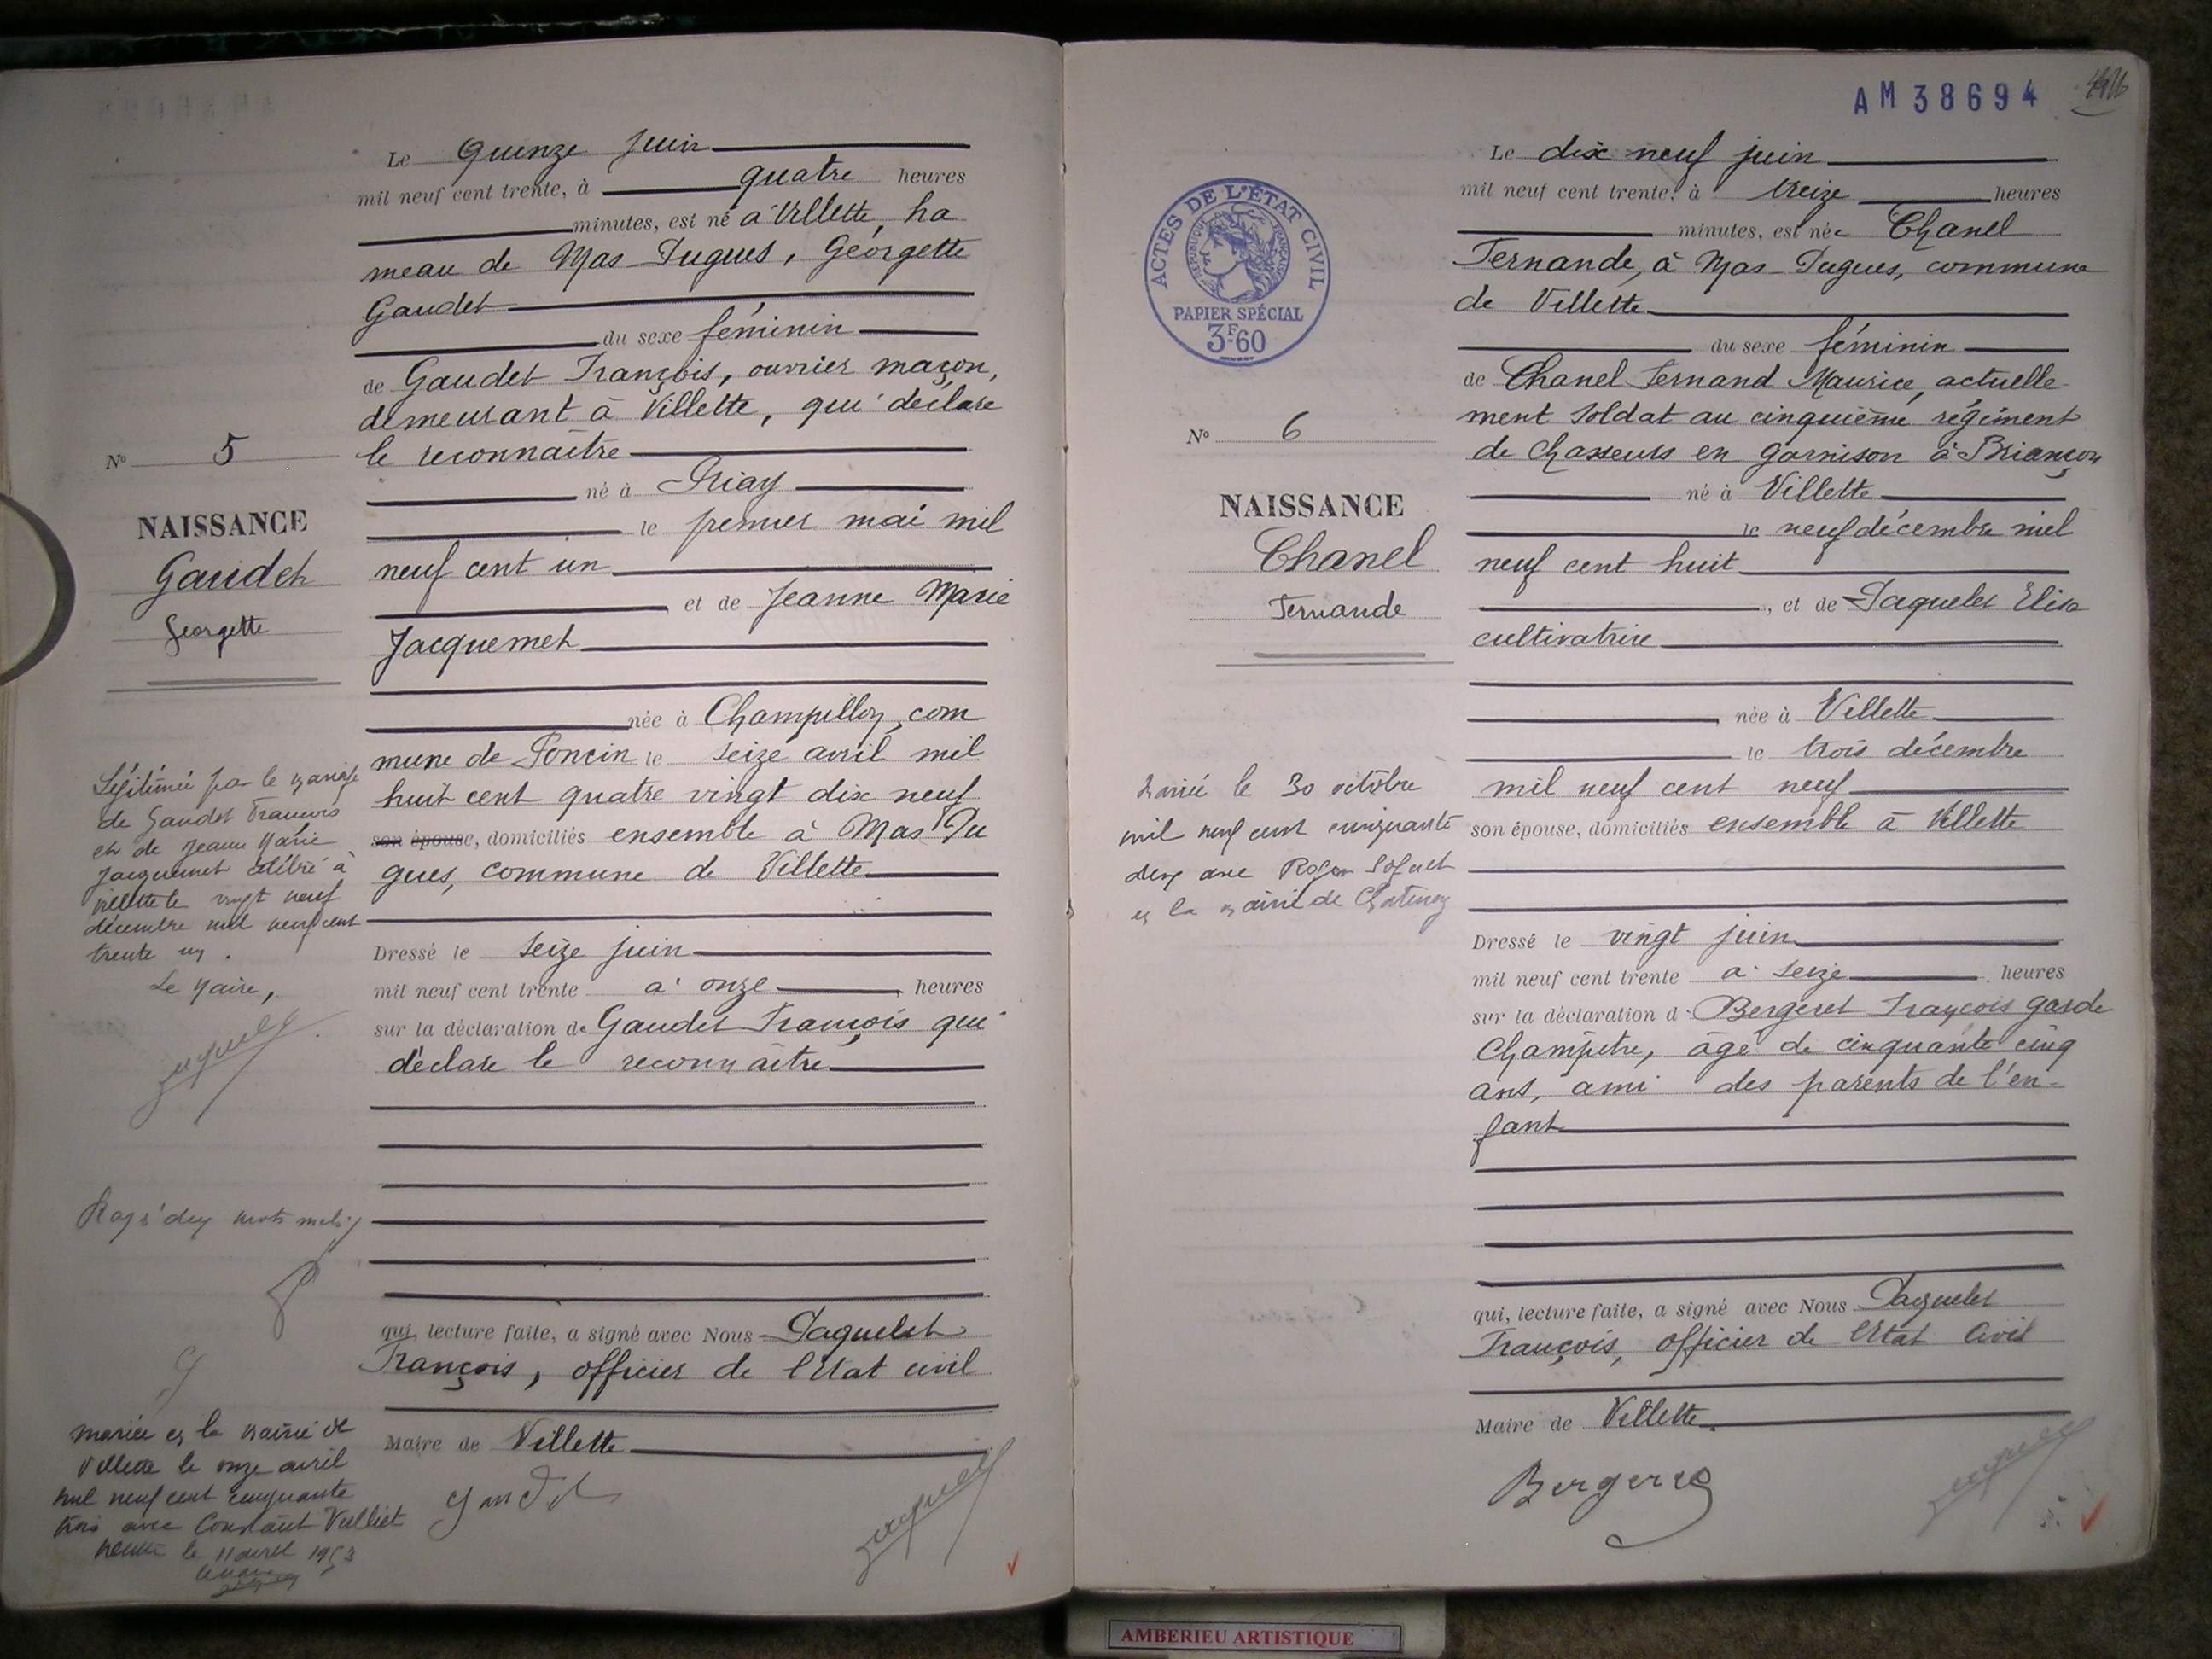 Le Quinze juin
mil neuf cent trente, à quatre heures
minutes, est né à Villette, ha
meau de Mas Dugues, Georgette
Gaudet
du sexe féminin
de Gaudet François, ouvrier maçon,
demeurant à Villette, qui déclare
le reconnaître
né à Priay
le premier mai mil
neuf cent un
et de Jeanne Marie
Jacquemet
née à Champillon, com
mune de Poncin le seize avril mil
huit cent quatre vingt dix neuf
son épouse, domiciliés ensemble à Mas Du
gues, commune de Villette
Dressé le seize juin
mil neuf cent trente à onze heures
sur la déclaration de Gaudet François qui
déclare le reconnaître
qui, lecture faite, a signé avec Nous Paquelet
François, officier de l'Etat civil
Maire de Villette
No 5
NAISSANCE
Gaudet
Georgette
Légitimée par le mariage
de Gaudet François
et de Jeanne Marie
Jacquemet célébré à
Villette le vingt neuf
décembre mil neuf cent
trente un.
Le Maire,
mots
mariée en la mairie de
Villette le onze avril
mil neuf cent cinquante
trois avec Constant Vulliet
le 11 avril 1953
AM38694
Le dix neuf juin
mil neuf cent trente, à treize heures
minutes, est née Chanel
Fernande, à Mas Dugues, commune
de Villette
du sexe féminin
de Chanel Fernand Maurice, actuelle
ment soldat au cinquième régiment
de chasseurs en garnison à Briançon
né à Villette
le neuf décembre mil
neuf cent huit
, et de Paquelet Elisa
cultivatrice
, née à Villette
le trois décembre
mil neuf cent neuf
son épouse, domiciliés ensemble à Villette
Dressé le vingt juin
mil neuf cent trente à seize heures
sur la déclaration d Bergeret François garde
Champêtre, âgé de cinquante cinq
ans, ami des parents de l'en-
fant
qui, lecture faite, a signé avec Nous Paquelet
François, officier de l'Etat Civil
Maire de Villette.
Bergeret
ACTES DE L'ÉTAT CIVIL
RÉPUBLIQUE FRANÇAISE
PAPIER SPÉCIAL
3F60
No 6
NAISSANCE
Chanel
Fernande
Mariée le 30 octobre
mil neuf cent cinquante
deux avec Roger
en la mairie de
AMBERIEU ARTISTIQUE